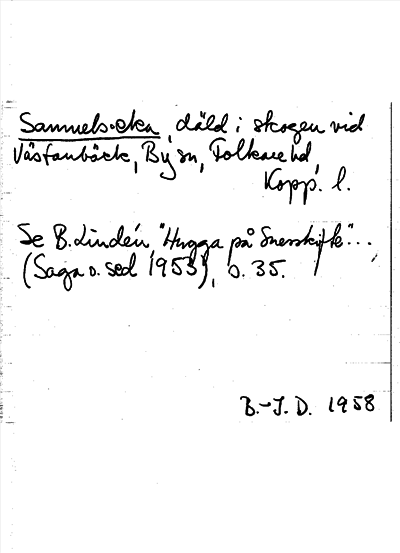 Samuels-eka, däld i skogen vid
Västanbäck, By sn, Folkare hd,
Kopp. l.
Se B. Lindén, "Hugga på Svesskifte"...
(Saga o. sed 1953), s. 35.
B.-J. D. 1958